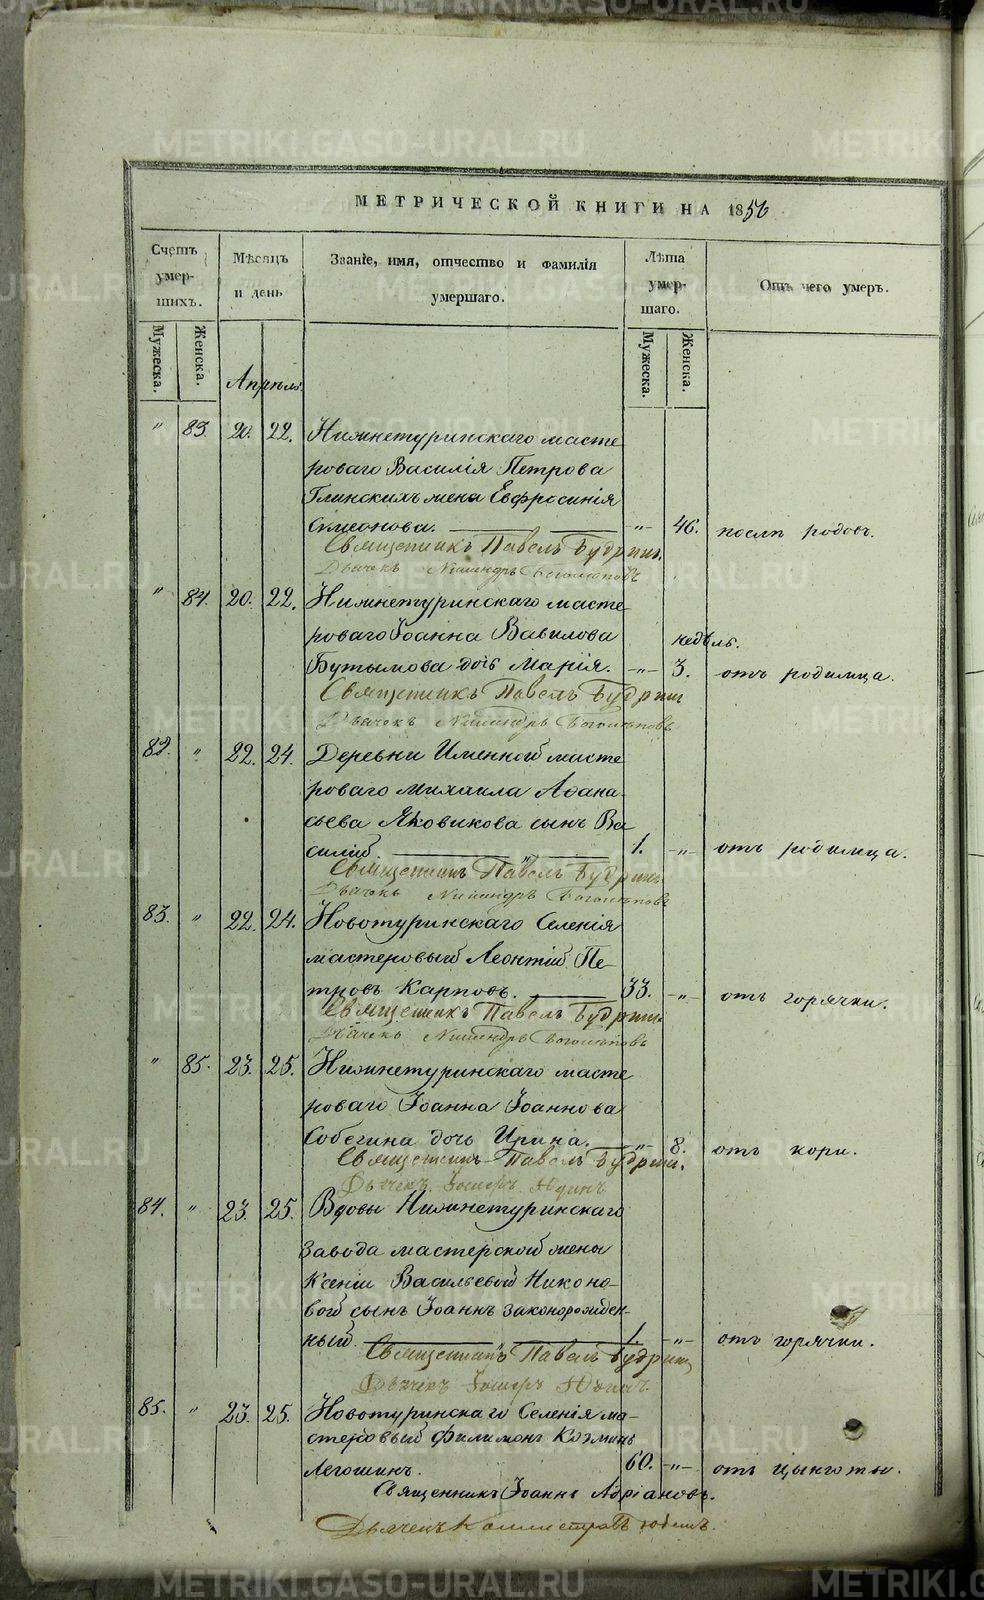 METRIKI.GASO-URAL.RU
МЕТРИЧЕСКОЙ КНИГИ НА 1856
Счетъ умер-шихъ.
Мѣсяцъ и день
Званіе, имя, отчество и фамилія умершаго.
Лѣта умер-шаго.
Отъ чего умеръ.
Мужеска. Женска.
Мужеска. Женска.
Апрѣль.
" 83. 20. 22. Нижнетуринскаго масте
роваго Василія Петрова
Глинскихъ жена Евфросинія
Симеонова. -"- 46. послѣ родовъ.
Священникъ Павелъ
Дьячекъ
" 84. 20. 22. Нижнетуринскаго масте-
роваго Іоанна Вавилова недѣль.
Бутымова дочь Марія. -"- 3. отъ родимца.
Священникъ Павелъ
Дьячекъ
82. " 22. 24. Деревни Именной масте
роваго Михаила Афана-
сьева Яковикова сынъ Ва
силій 1. -"- отъ родимца.
Священникъ Павелъ
Дьячекъ
83. " 22. 24. Новотуринскаго Селенія
мастеровый Леонтій Пе-
тровъ Карповъ. 33. -"- отъ горячки.
Священникъ Павелъ
Дьячекъ
" 85. 23. 25. Нижнетуринскаго масте
роваго Іоанна Іоаннова
Собегина дочь Ирина. -"- 8. отъ кори.
Священникъ Павелъ
Дьячекъ
84. " 23. 25. Вдовы Нижнетуринскаго
завода мастерской жены
Ксеніи Васильевой Никоно-
вой сынъ Іоаннъ законорожден-
ный. 1. -"- отъ горячки.
Священникъ Павелъ
Дьячекъ
85. " 23. 25. Новотуринскаго Селенія ма-
стеровый Филимонъ Козминъ
Легошинъ. 60. -"- отъ цынготы.
Священникъ Іоаннъ Адріановъ.
Дьячекъ